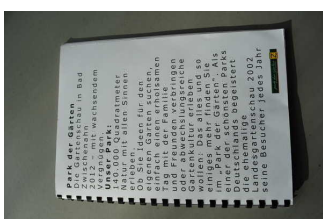 Park der Gärten
Die Gartenschau in Bad
Zwischenahn
2012 – mit wachsendem
Vergnügen.
Unser Park:
140.000 Quadratmeter
Natur mit allen Sinnen
erleben.
Ob Sie Ideen für den
eigenen Garten suchen,
einfach einen erholsamen
Tag mit der Familie
und Freunden verbringen
oder abwechslungsreiche
Gartenkultur erleben
wollen: Das alles und so
einiges mehr finden Sie
im „Park der Gärten“. Als
einer der schönsten Parks
Deutschlands begeistert
die ehemalige
Landesgartenschau 2002
seine Besucher jedes Jahr